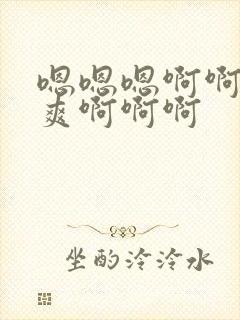 嗯嗯嗯啊啊
爽啊啊啊
坐酌泠泠水